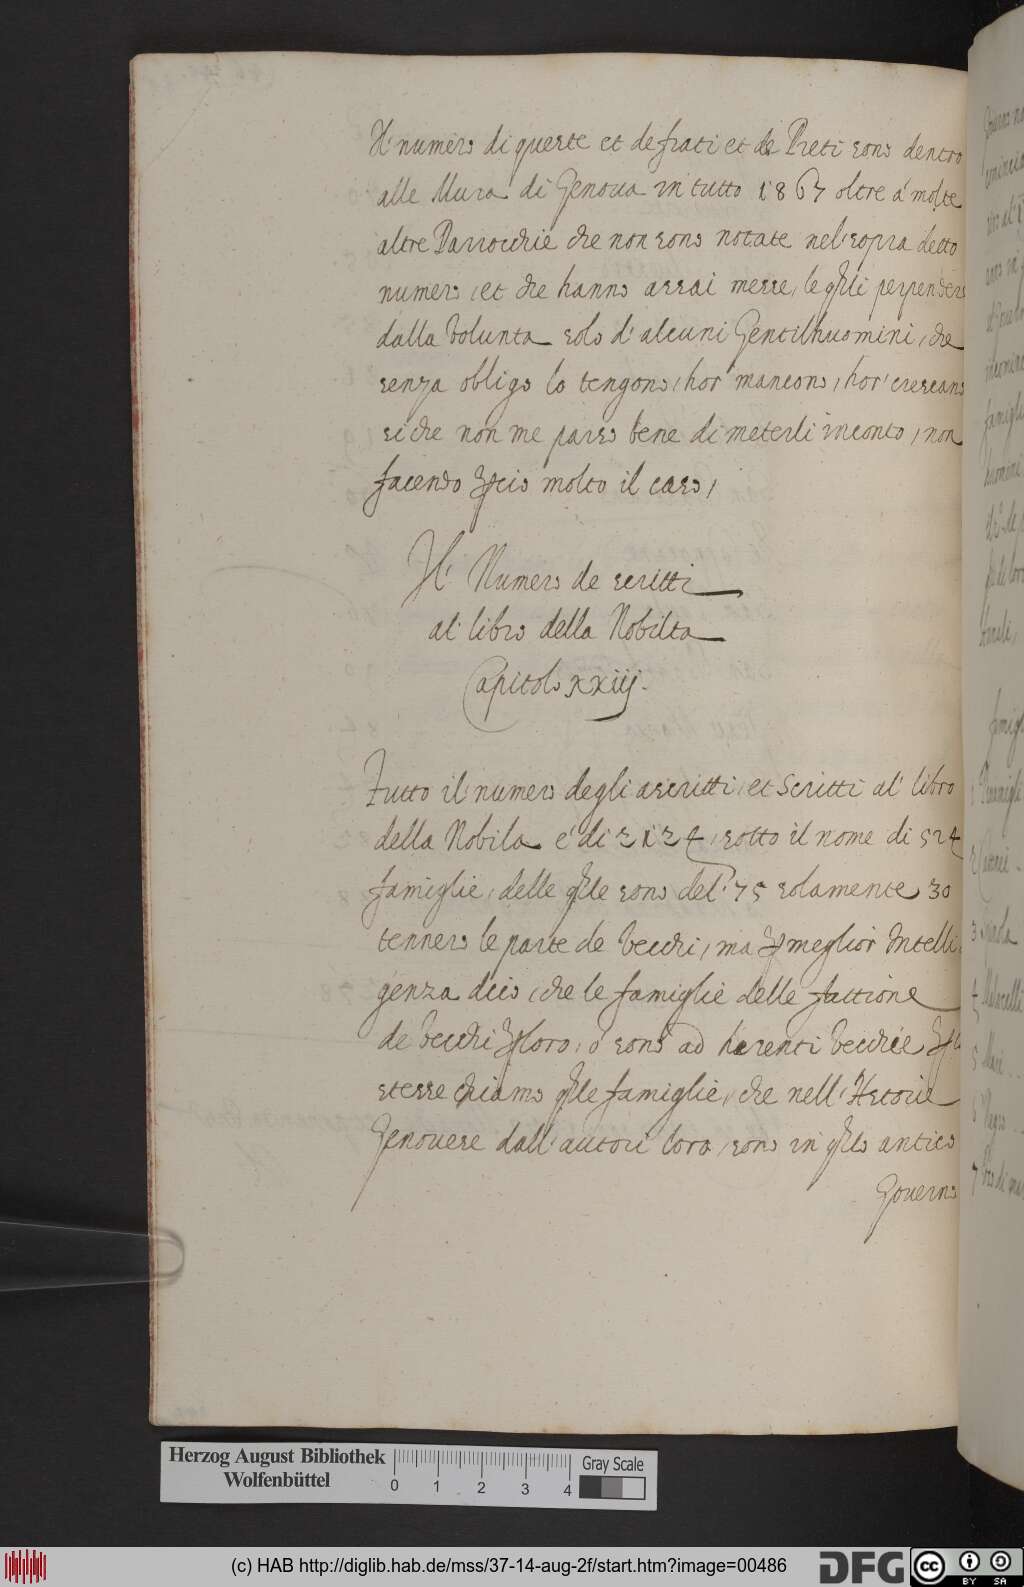 Il numero di queste et de frati et de Preti sono dentro
alle Mura di Genoua in tutto 1867 oltre á molte
altre Parrocchie che non sono notate nel sopra detto
numero, et che hanno assai messe, le qli
dalla volunta solo d'alcuni Gentilhuomini, che
senza obligo lo tengono, hor' mancono, hor' crescano
si che non me parso bene di meterli in conto, non
facendo pcio molto il caso,
Il Numero de scritti
al libro della Nobilta
Capitolo xxiij.
Tutto il numero degli ascritti, et Scritti al' libro
della Nobila é di 2124, sotto il nome di 524
famiglie, delle qle sono del' 75 solamente 30
tennero le parte de vecchi, ma p meglior Intelli
genza dico, che le famiglie delle fattione
de vecchi ploro, ó sono ad herenti vecchie
stesse chiamo qle famiglie, che nell' Hstorie
Genouese dall' autori loro, sono in qllo antico
Gouerno
Herzog August Bibliothek
Wolfenbüttel
0 1 2 3 4
Gray Scale
(c) HAB http://diglib.hab.de/mss/37-14-aug-2f/start.htm?image=00486
DFG
cc BY SA